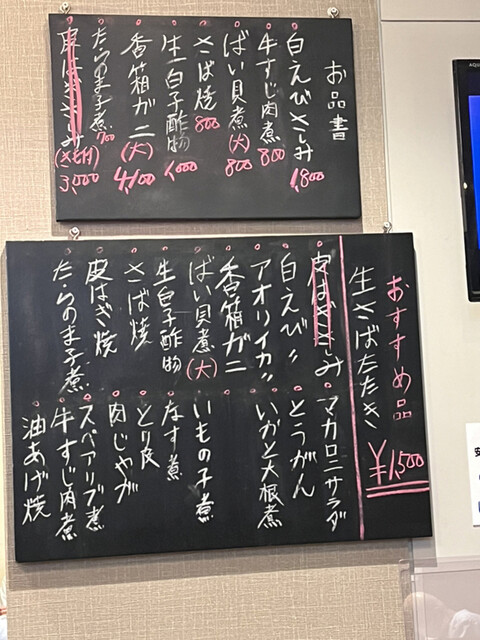 お品書
白えびさしみ 1,800
牛すじ肉煮 800
ばい貝煮(大) 800
さば焼 800
生白子酢物 1,000
香箱ガニ(大) 4,100
たらのま子煮 700
皮はぎさしみ(きも付) 3,000
おすすめ品 ¥1,500
生さばたたき
皮はぎさしみ
白えび〃
アオリイカ〃
香箱ガニ
ばい貝煮(大)
生白子酢物
さば焼
皮はぎ焼
たらのま子煮
マカロニサラダ
とうがん
いかと大根煮
いもの子煮
なす煮
とり皮
肉じゃが
スペアリブ煮
牛すじ肉煮
油あげ焼